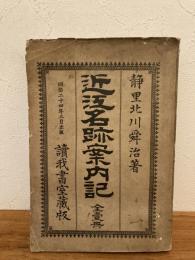 静里北川舜治著
近江名跡案内記
全壹冊
明治二十四年三月出版
讀我書室藏版